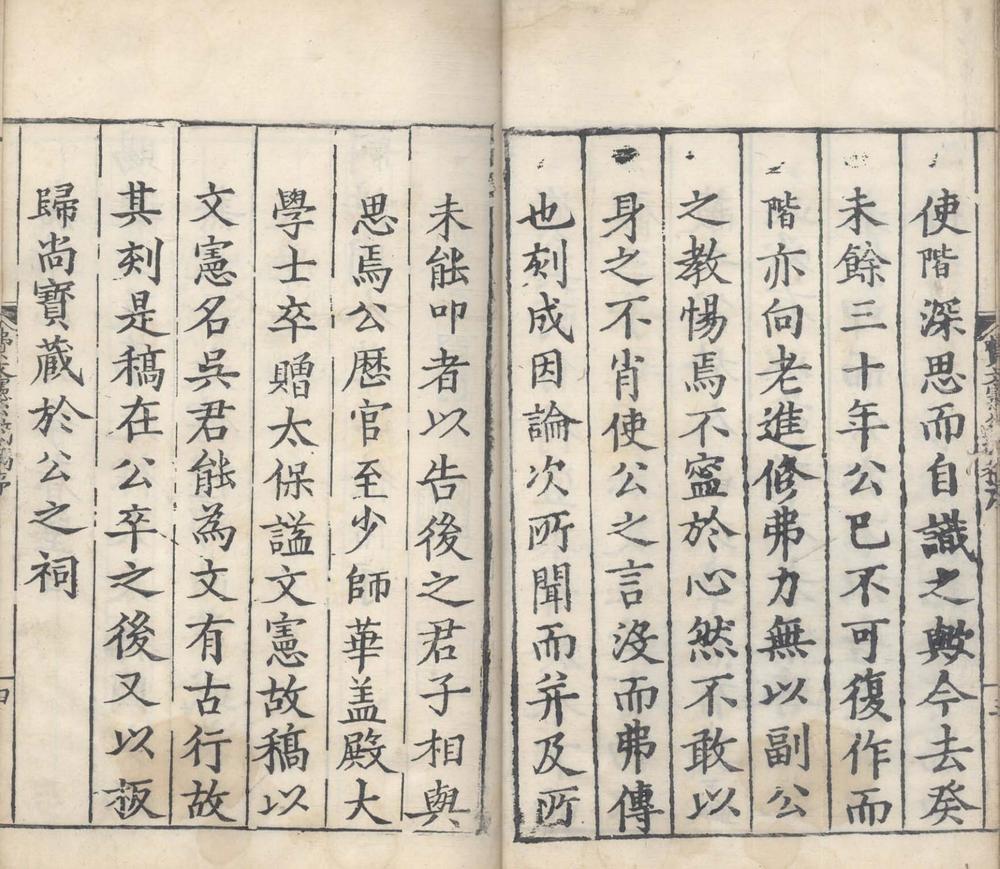 使階深思而自識之歟今去癸
未餘三十年公已不可復作而
階亦向老進修弗力無以副公
之教惕焉不寧於心然不敢以
身之不肖使公之言沒而弗傳
也刻成因論次所聞而并及所
未能叩者以告後之君子相與
思焉公歷官至少師華盖殿大
學士卒贈太保謚文憲故稿以
文憲名吳君能為文有古行故
其刻是稿在公卒之後又以板
歸尚寶藏於公之祠